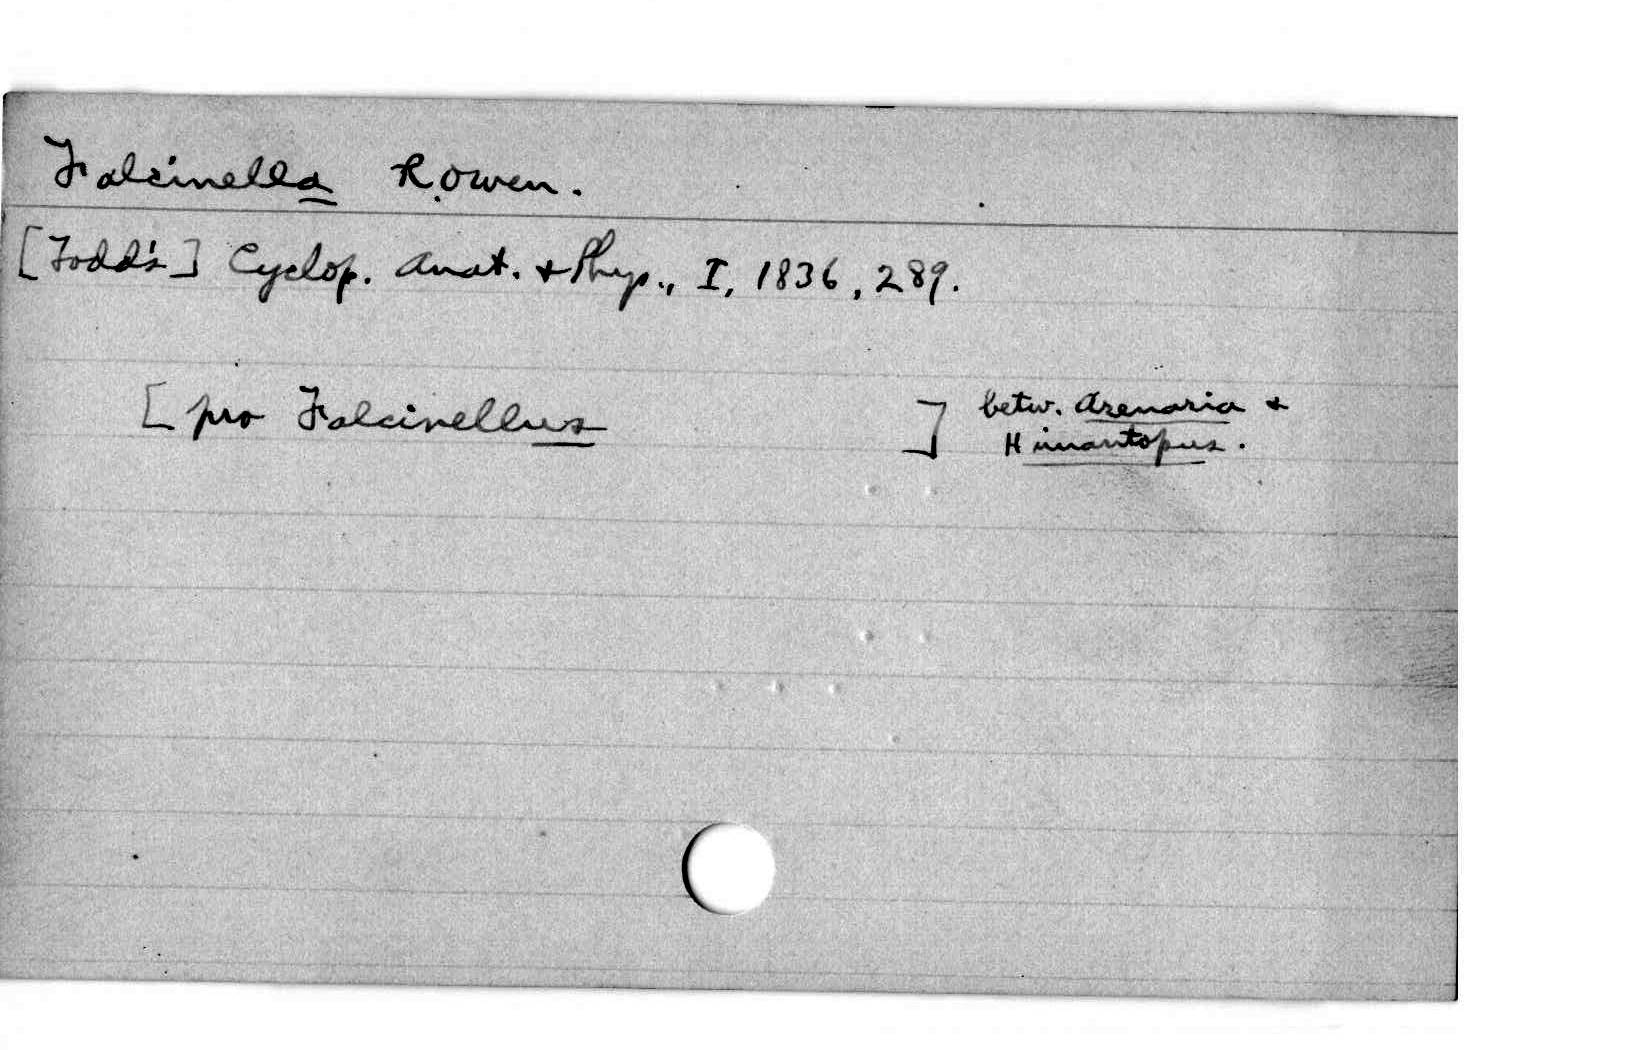 Falcinella R. Owen.
[Todd's] Cyclop. Anat. & Phys., I, 1836, 289.
[ pro Falcinellus ] betw. Arenaria &
Himantopus.